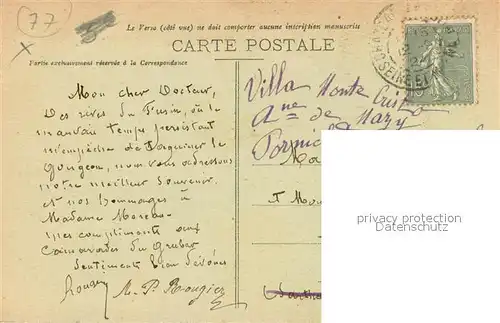 77
Le Verso (côté vue) ne doit comporter aucune inscription manuscrite
CARTE POSTALE
Partie exclusivement réservée à la Correspondance
Mon cher Docteur,
Des rives du Fusin, où le
mauvais temps persistant
m'empêche de taquiner le
Goujeon, nous vous adressons
notre meilleur souvenir
et nos hommages à
Madame Moreau
mes compliments aux
Camarades du
Sentiments bien dévoués
M. P. Rougier
Villa Monte Cristo
Ane de Mazy
Pornic
Ma
et Mou
privacy protection
Datenschutz